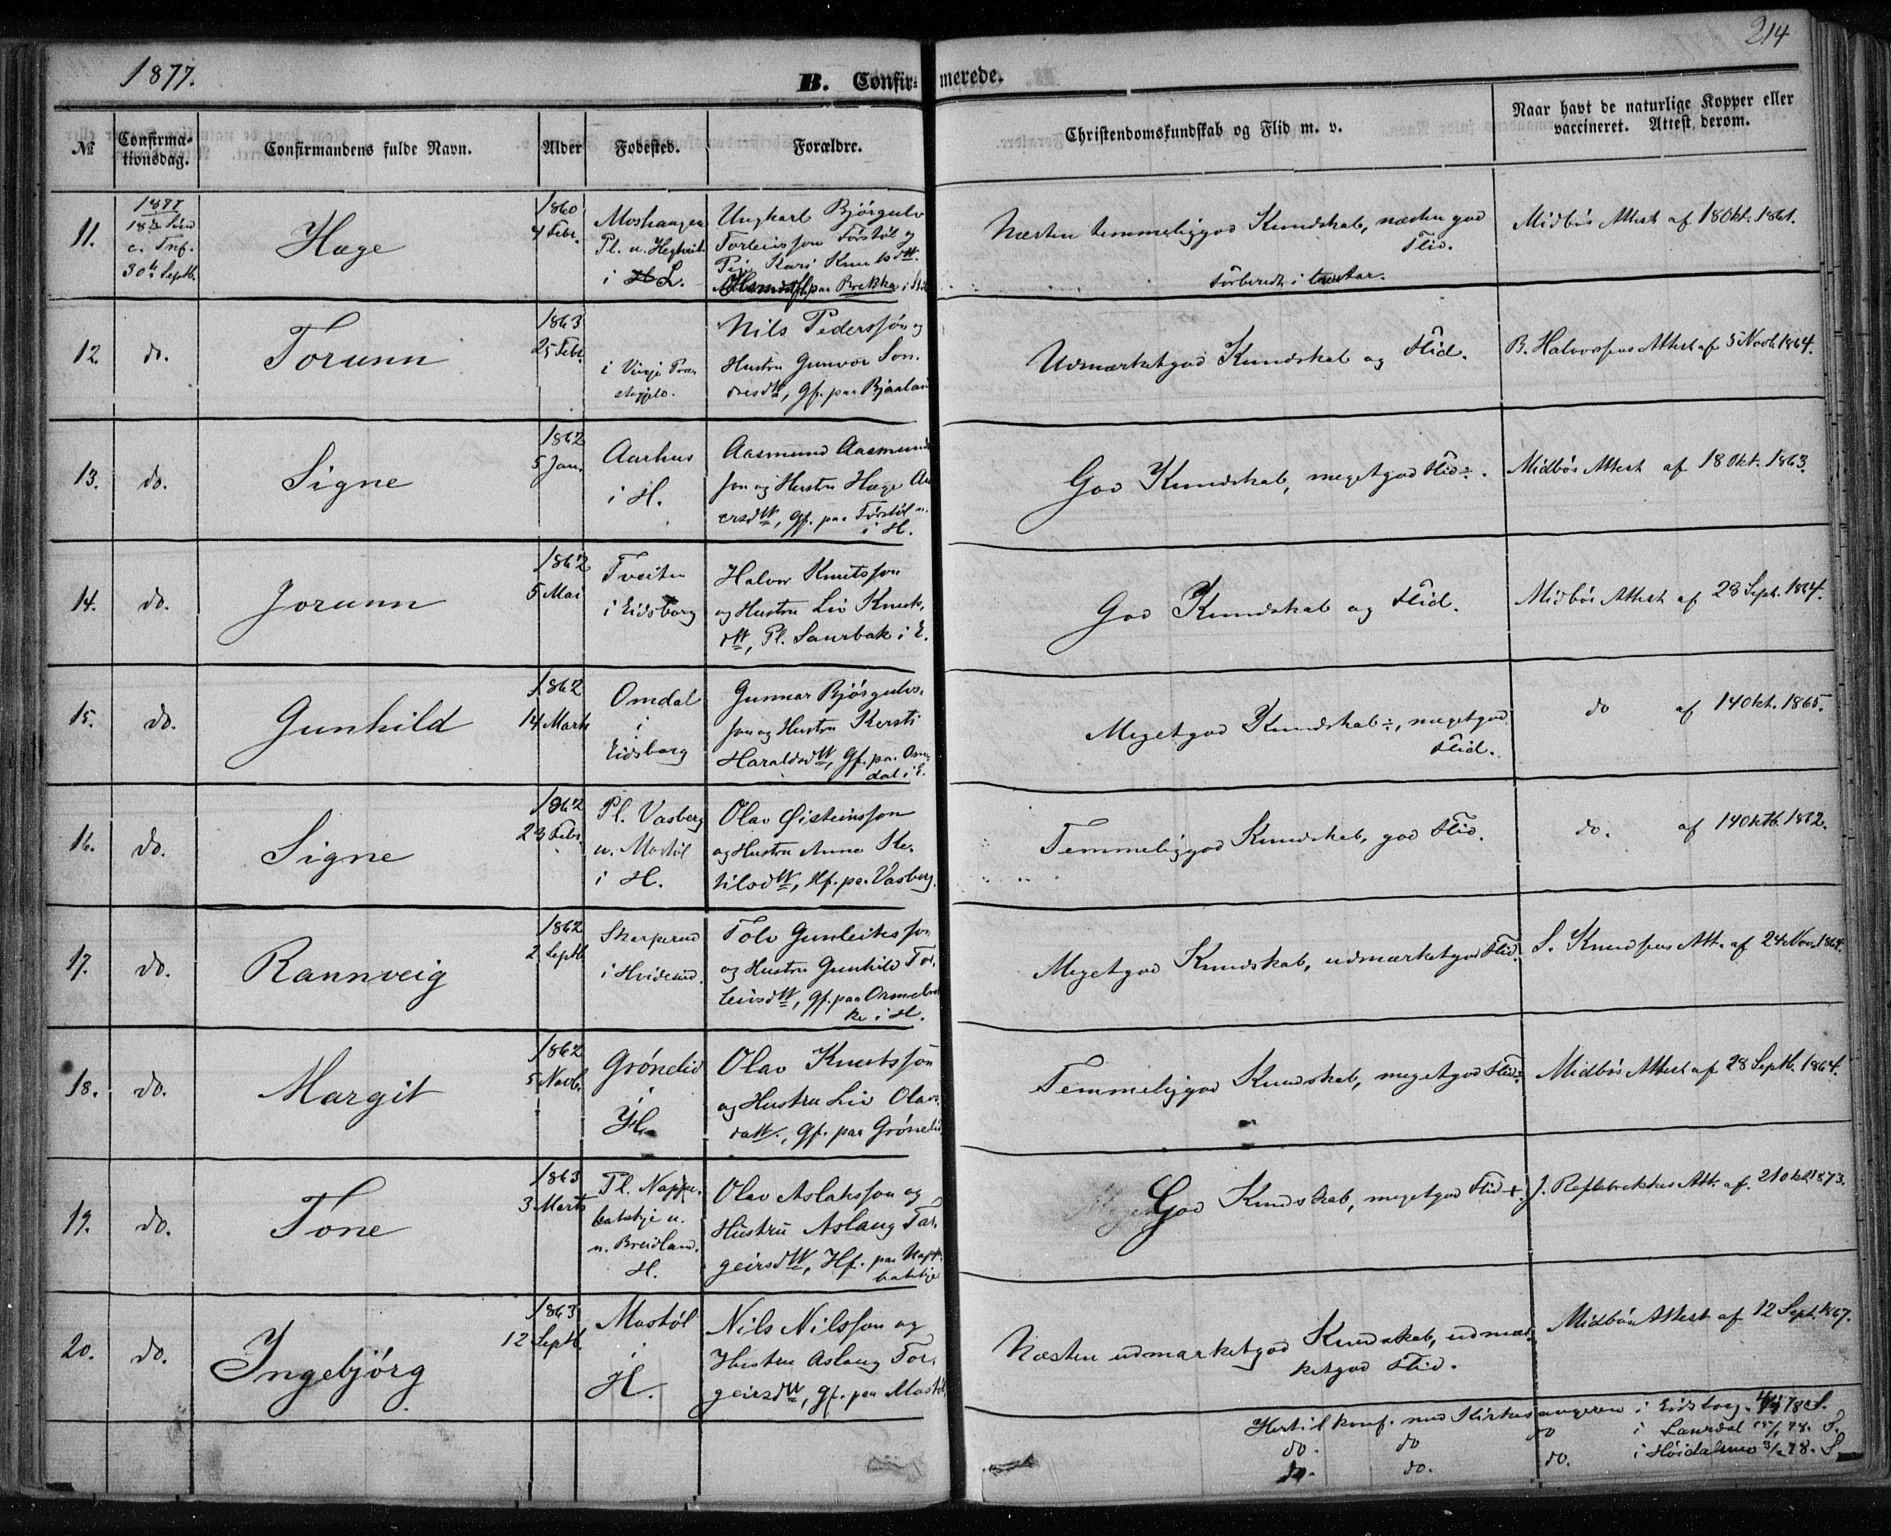 1877.
214
B. Confirmerede.
№
Confirma-
tionsdag.
Confirmandens fulde Navn.
Alder
Fødested.
Forældre.
Christendomskundskab og Flid m. v.
Naar havt de naturlige Kopper eller
vaccineret. Attest derom.
11.
1877
18de Sønd
e. Trf.
30te Septb.
Hæge
1860
4 Febr.
Moshaugen
Pl. u.
i L.
Ungkarl Bjørgulv
Torleivsson Førstøl og
Pige Kari Knutsdtt.
paa Brekka i
Næsten temmeliggod Kundskab, næsten god
Flid.
Forberedt i tvende Aar.
Midbøs Attest af 18 Okt. 1861.
12
do.
Torunn
1863
25 Febr.
i Vinje Præ
stegjeld.
Nils Pedersson og
Hustru Gunvor Son-
dresdtt, Gf. paa Bjaaland
Udmærketgod Kundskab og Flid.
B. Halvorsens Attest af 5 Novb 1864.
13.
do.
Signe
1862
5 Jan.
Aarhus
i H.
Aasmund Aasmunds
søn og Hustru Hæge An
ersdtt, Gf. paa Førstøl n.
i H.
God Kundskab, megetgod Flid ÷.
Midbøs Attest af 18 Okt. 1863.
14.
do.
Jorunn
1862
5 Mai
Tveiten
i Eidsborg
Halvor Knutsson
og Hustru Liv Knuts-
dtt, Pl. Saurbak i E.
God Kundskab og Flid.
Midbøs Attest af 28 Sept. 1864.
15.
do.
Gunhild
1862
14 Marts
Omdal
i
Eidsborg
Gunnar Bjørgulvs-
søn og Hustru Kersti
Haraldsdtt, Gf. paa Om-
dal i E.
Megetgod Kundskab ÷, megetgod
Flid.
do af 14 Okt. 1865.
16.
do.
Signe
1862
23 Febr.
Pl. Vasberg
u. Mostøl
i H.
Olav Øisteinsson
og Hustru Anne Ke-
tilsdtt, Hf. paa Vasberg.
Temmeliggod Kundskab, god Flid.
do. af 14 Oktb. 1862.
17.
do.
Rannveig
1862
2 Septb
Skarperud
i Hvidesed.
Tolv Gunleiksson
og Hustru Gunhild Tor-
leivsdtt, Gf. paa Ormebrek
ke i H.
Megetgod Kundskab, udmærketgod Flid.
S. Knudsens Att. af 24 Nov. 1864.
18.
do.
Margit
1862
5 Novb.
Grønelid
i H.
Olav Knutsson
og Hustru Liv Olavs-
datt., Gf. paa Grønelid
Temmeliggod Kundskab, megetgod Flid ÷
Midbøs Attest af 28 Septb. 1864.
19.
do.
Tone
1863
3 Marts
Pl. Nappe-
batekje u.
n. Breidland.
H.
Olav Aslaksson og
Hustru Aslaug Tar-
geirsdtt, Hf. paa Napp-
batekje
God Kundskab, megetgod Flid +.
J. Att. af. 21 Okt 1873.
20.
do.
Ingebjörg
1863
12 Septb.
Mostøl
i
H.
Nils Nilsson og
Hustru Aslaug Tor-
geirsdtt, Gf. paa Mostøl
Næsten udmærketgod Kundskab, udmær-
ketgod Flid.
Midbøs Attest af 12 Sept. 1867.
Hertil konf. med Kirkesangeren i Eidsborg 78 S.
do. do do i Laurdal 78. S.
do. do. do. i Høidalsmo 78. S